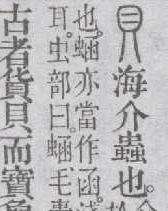 貝海介蟲也。
也。蜬亦當作函。
耳。虫部曰。蜬毛蠹
古者貨貝而寶龜